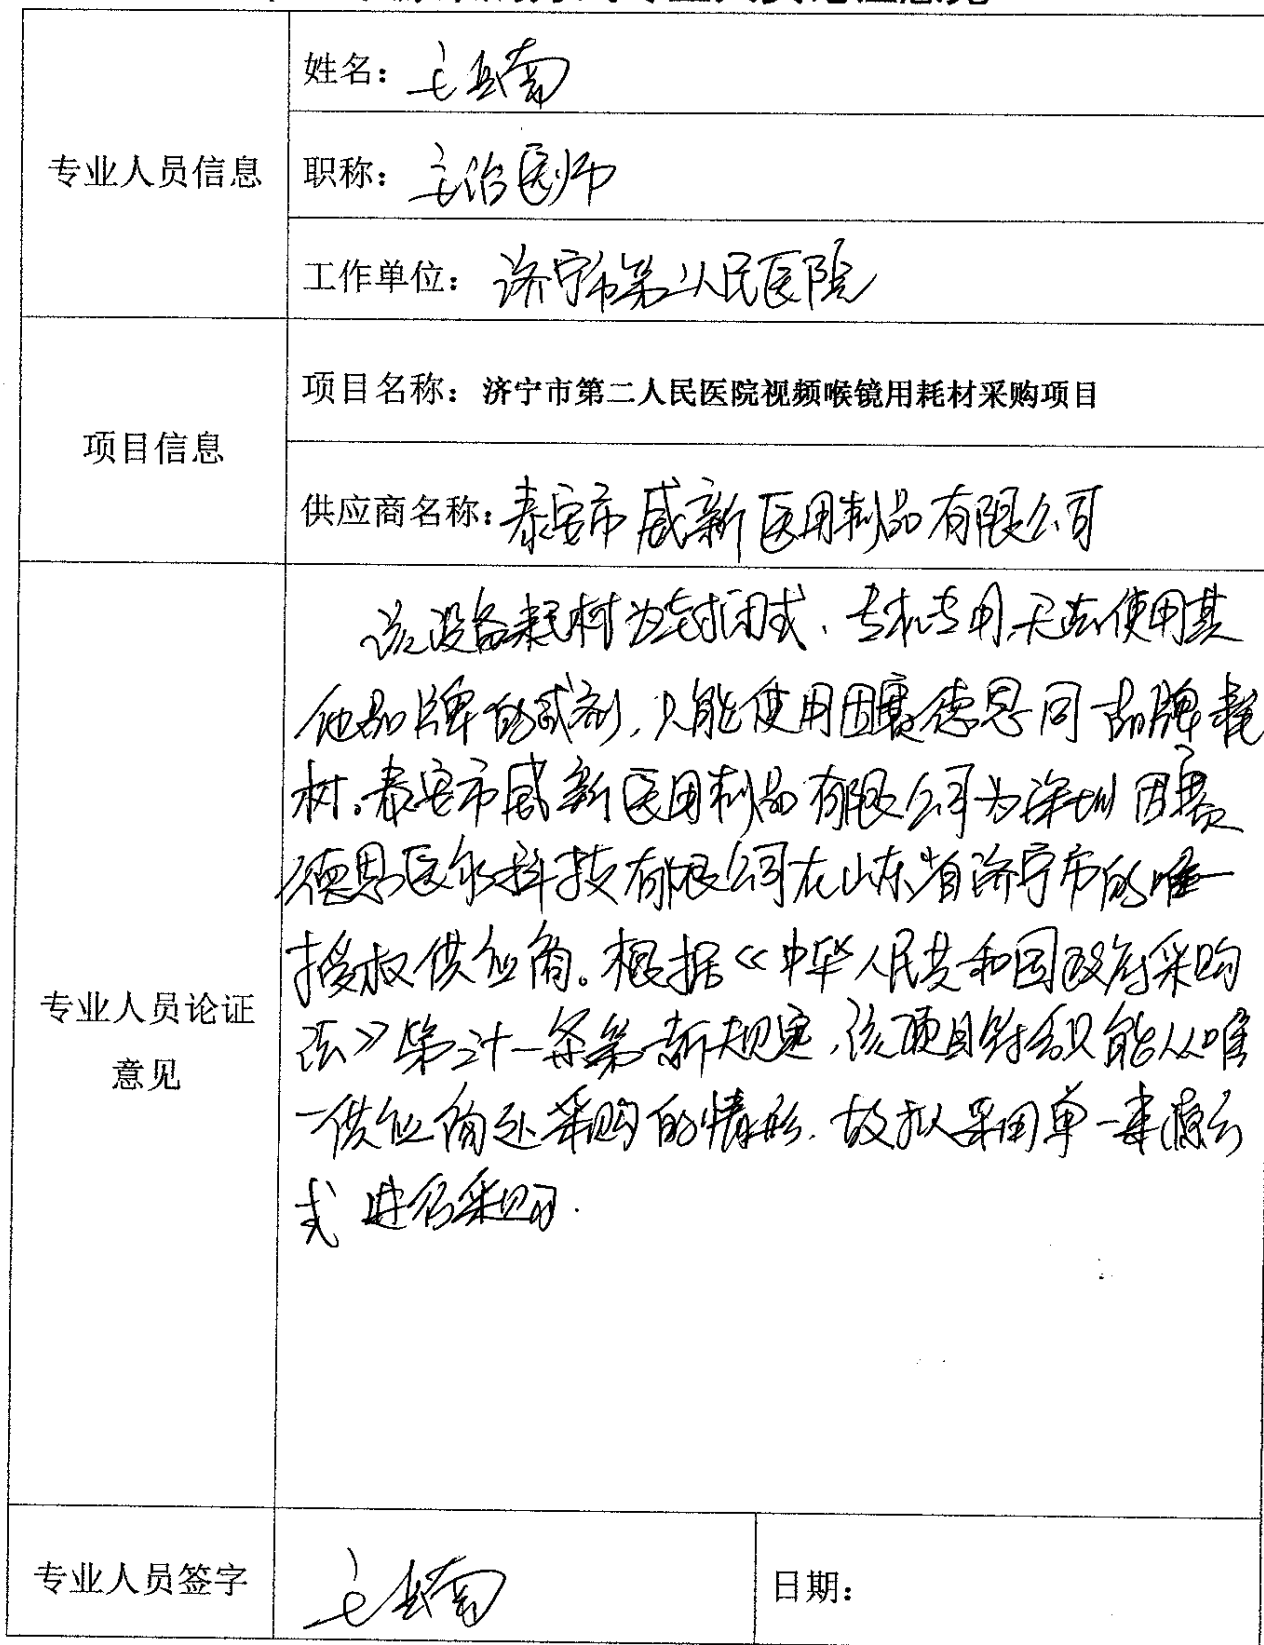 专业人员信息
姓名：
职称：主治医师
工作单位：济宁市第一人民医院
项目信息
项目名称：济宁市第二人民医院视频喉镜用耗材采购项目
供应商名称：泰安市威新医用制品有限公司
专业人员论证
意见
该设备耗材为封闭式、专机专用，无法使用其
他品牌的试剂，只能使用因赛德思同品牌耗
材。泰安市威新医用制品有限公司为深圳因赛
德思医疗科技有限公司在山东省济宁市的唯一
授权供应商。根据《中华人民共和国政府采购
法》第三十一条第一款规定，该项目符合只能从唯
一供应商处采购的情形，故拟采用单一来源方
式进行采购.
专业人员签字
日期：